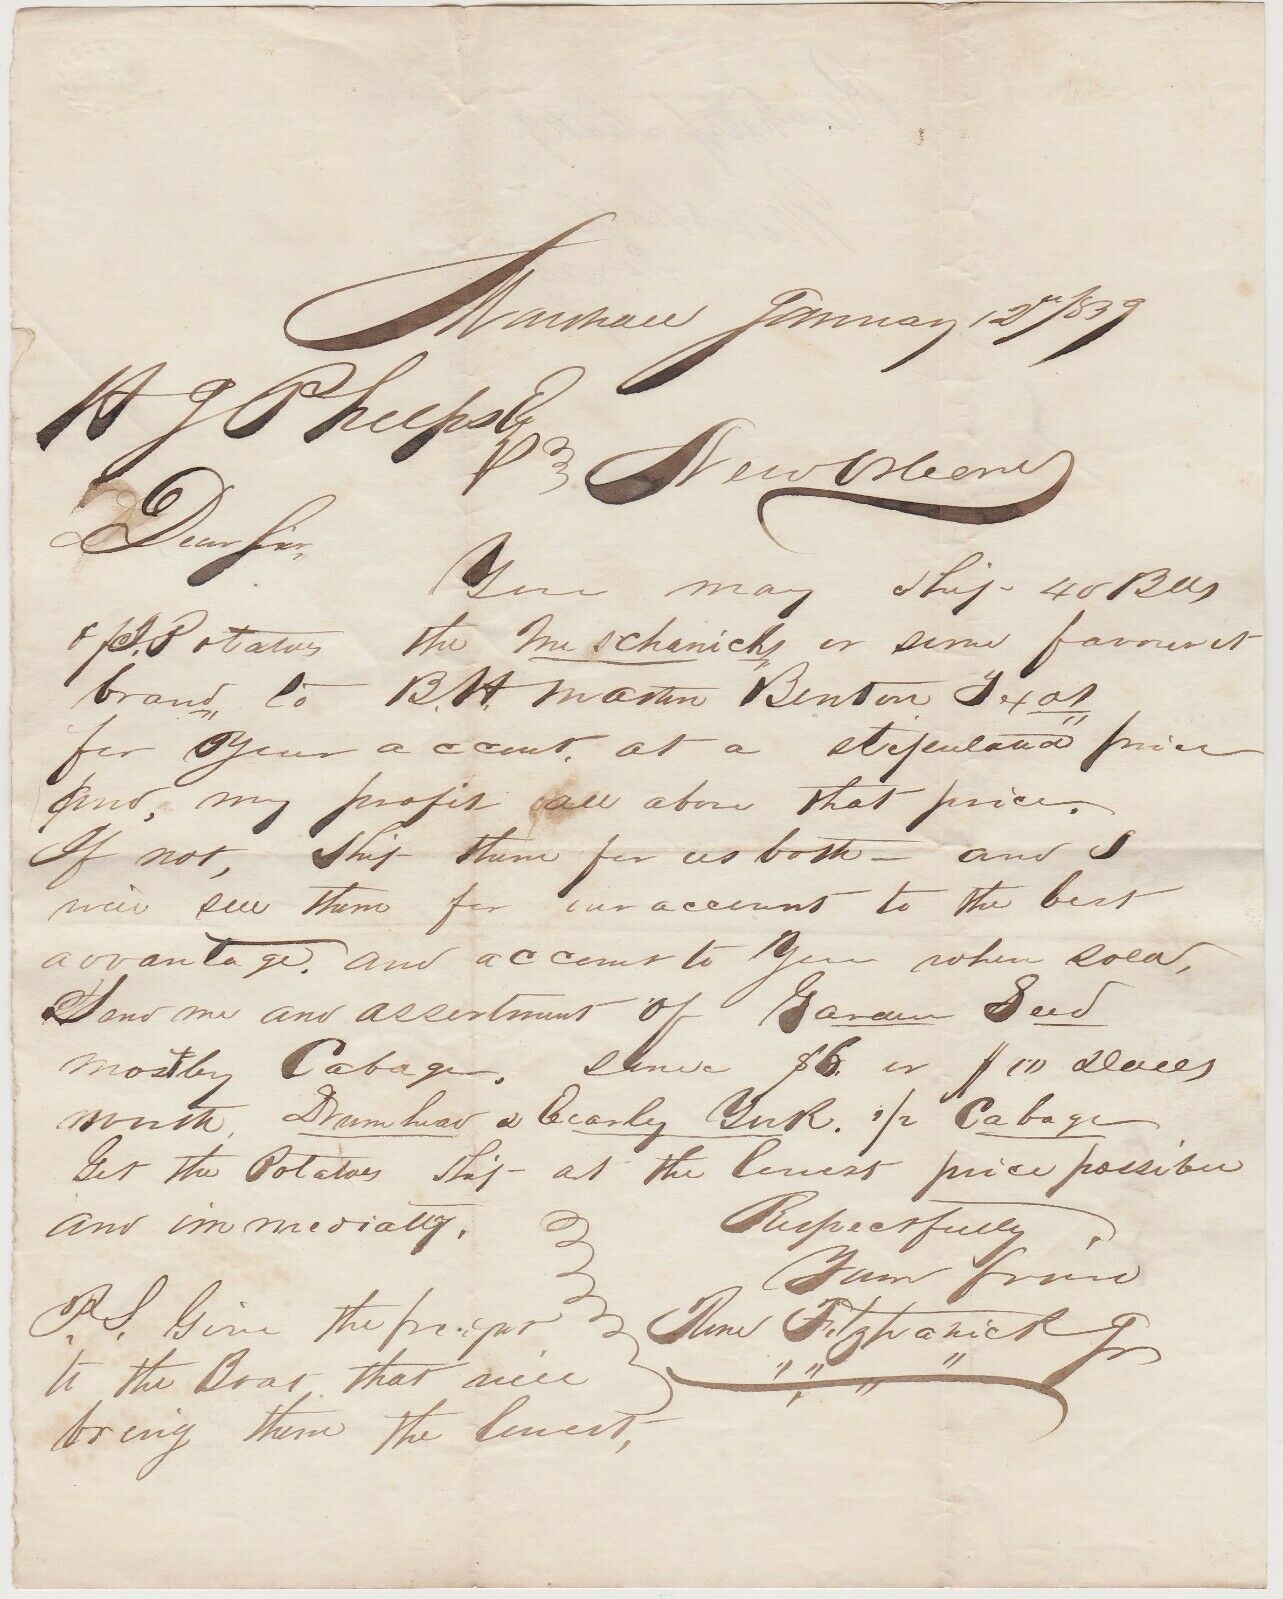 Marshall January 12th 1839
H G Phelps Esq
New Orleans
Dear Sir,
You may ship 40 Blls
of Potatoes the Meschanicks or some favourit
brand, to B.H. Martin Benton Texas
for your account, at a stipulated price
and, my profit all above that price.
If not, ship them for us both – and I
will sell them for our account to the best
advantage. and account to you when sold,
Send me and assortment of Garden Seed
mostly Cabage. some $6. or $10 dolls
worth, Drumhead & Early York. Cabage
Get the Potatoes ship at the lowest price possible
and immediatly.
Respectfully,
Your friend
Rene Fitzpatrick Jr
P.S. Give the freight
to the Boat, that will
bring them the lowest,